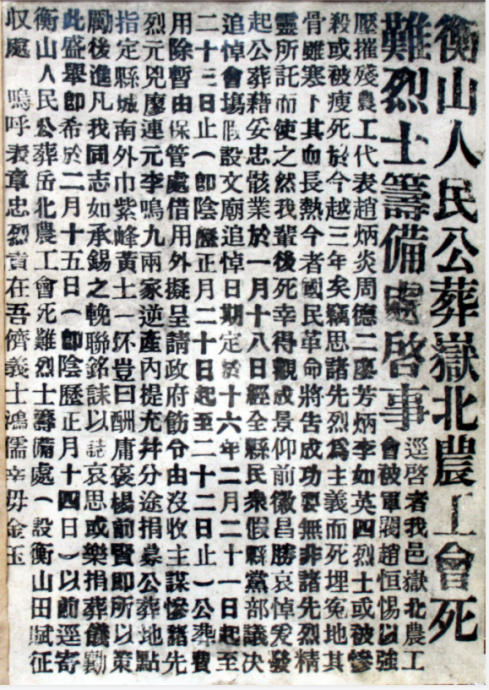 衡山人民公葬嶽北農工會死
難烈士籌備處啓事
逕啓者我邑嶽北農工
會被軍閥趙恒惕以強
壓摧殘農工代表趙炳炎周德二廖芳炳李如英四烈士或被慘
殺或被瘐死於今越三年矣竊思諸先烈爲主義而死埋冤地其
骨雖寒卜其血長熱今者國民革命將告成功要無非諸先烈精
靈所託而使之然我輩後死幸得觀成景仰前徽昌勝哀悼爰發
起公葬藉妥忠骸業於一月十八日經全縣民衆假縣黨部議决
追悼會塲假設文廟追悼日期定於十六年二月二十一日起至
二十三日止(即陰歷正月二十日起至二十二日止)公葬費
用除暫由保管處借用外擬呈請政府飭令由沒收主謀慘諸先
烈元兇廖連元李鳴九兩家逆產內提充幷分途捐募公葬地點
指定縣城南外巾紫峰黃土一坏豈曰酬庸褒楊前賢即所以策
勵後進凡我同志如承錫之輓聯銘誄以誌哀思或樂捐葬儀勷
此盛舉即希於二月十五日(即陰歷正月十四日)以前逕寄
衡山人民公葬岳北農工會死難烈士籌備處(設衡山田賦征
收處 嗚呼表章忠烈責在吾儕義士鴻儒幸毋金玉